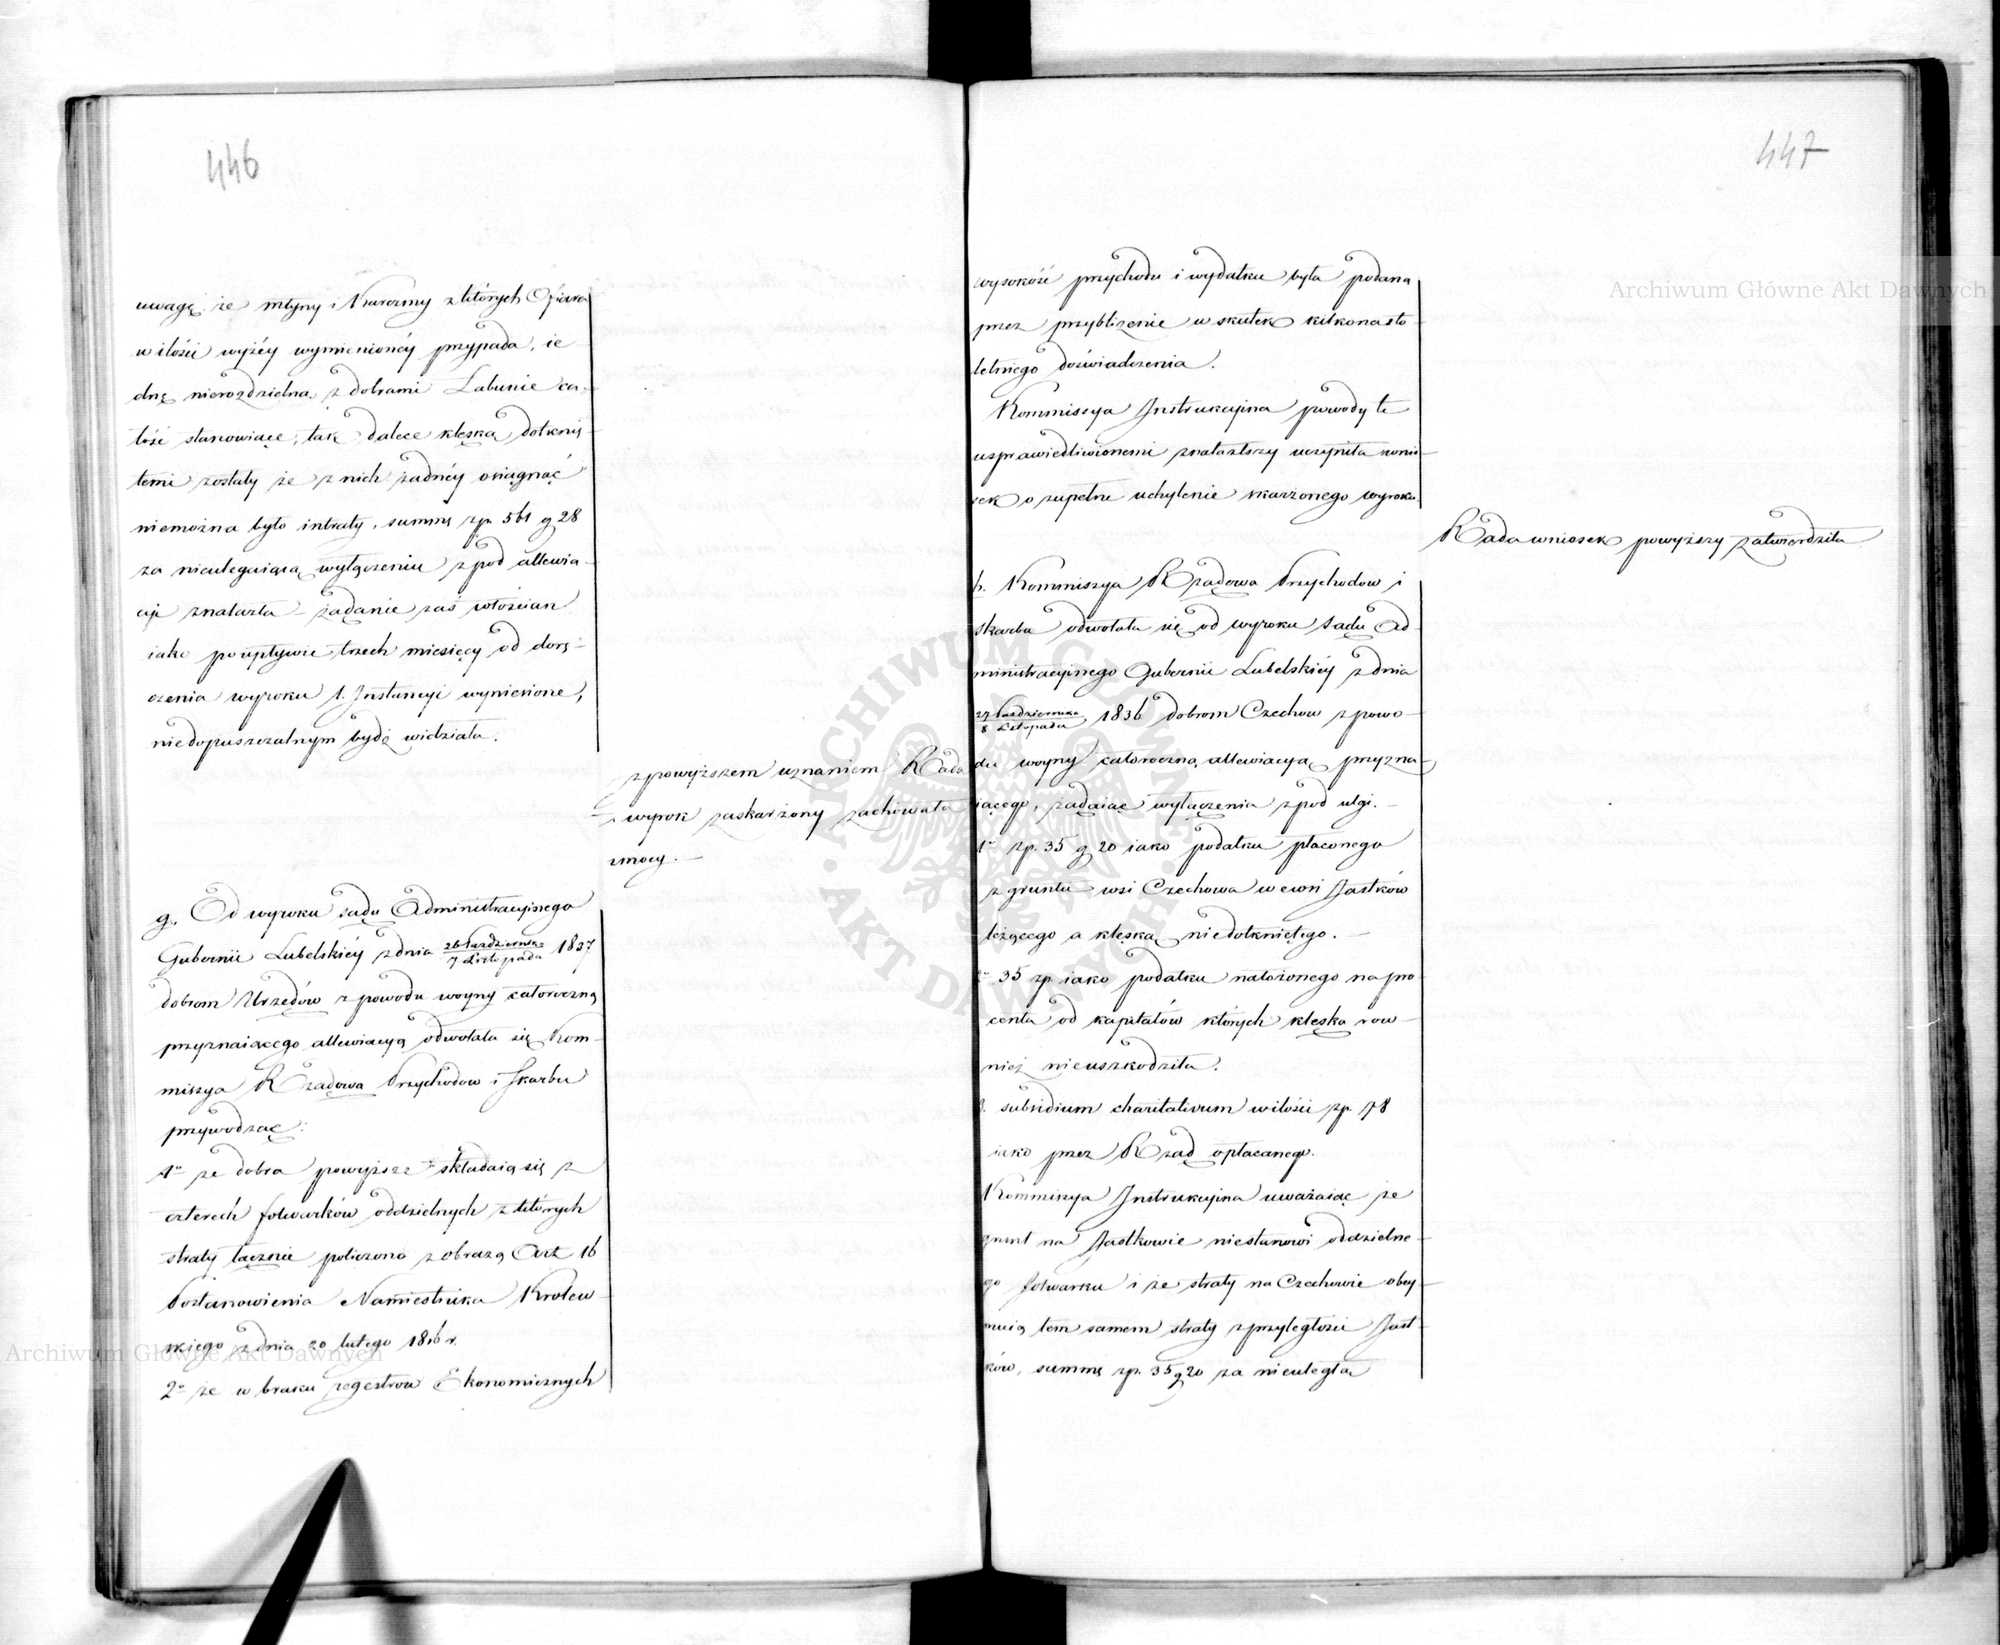 446
uwagę, że młyny i Karczmy z których Ofiara
w ilości wyżéy wymienionéy przypada, ie
dnę nierozdzielną z dobrami Łabunie ca-
łość stanowiące, tak dalece klęską dotknię-
temi zostały że z nich żadnéy osiągnąć
niemożna było intraty, summę zp. 561 g 28
za nieulegaiącą wyłączeniu z pod allewia-
cyi znalazła – żądanie zaś włościan
iako po upływie trzech miesięcy od dorę-
czenia wyroku 1. Instancyi wyniesione,
niedopuszczalnym bydź widziała.
z powyższem uznaniem Rada
wyrok zaskarżony zachowała
w mocy. –
g. Od wyroku sądu Administracyjnego
Gubernii Lubelskiéy z dnia 26 Października / 7 Listopada 1837
dobrom Urzędów z powodu woyny całoroczną
przyznaiącego allewiacyą odwołała się Kom-
missya Rządowa Przychodow i Skarbu
przywodząc:
1° że dobra powyższe składaią się z
czterech folwarków oddzielnych z których
straty łącznie policzono z obrazą Art 16
Postanowienia Namiestnika Krolew-
skiego z dnia 20 lutego 1816 r.
2° że w braku regestrow Ekonomicznych
447
wysokość przychodu i wydatku była podana
przez przybliżenie w skutek kilkonasto-
letniego doświadczenia.
Kommissya Instrukcyjna powody te
usprawiedliwionemi znalazłszy uczyniła wnio-
sek o zupełne uchylenie skarżonego wyroku.
Rada wniosek powyższy zatwierdziła
h. Kommissya Rządowa Przychodow i
Skarbu odwołała się od wyroku Sądu Ad-
ministracyjnego Gubernii Lubelskiéy z dnia
27 Października / 8 Listopada 1836 dobrom Czechow z powo-
du woyny całoroczną allewiacyą przyzna-
iącego, żądaiąc wyłączenia z pod ulgi. –
1° zp. 35 g 20 iako podatku płaconego
z gruntu wsi Czechowa we wsi Jastków
leżącego a klęską niedotkniętego. –
2° 35 zp. iako podatku nałożonego na pro
centa od kapitałów których klęska row-
nież nieuszkodziła.
3. subsidium charitativum w ilości zp. 78
iako przez Rząd opłacanego.
Kommissya Instrukcyjna uważaiąc że
grunt na Jastkowie niestanowi oddzielne-
go folwarku i że straty na Czechowie obey-
muią tem samem straty z przyległości Jast-
ków, summę zp. 35 g 20 za nieuległą
Archiwum Główne Akt Dawnych
Archiwum Główne Akt Dawnych
ARCHIWUM GŁÓWNE AKT DAWNYCH